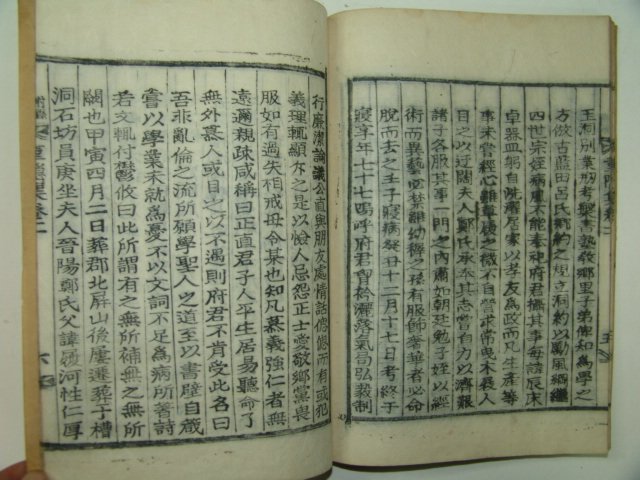 玉洞別業形考槃書塾敎鄕里子弟俾知爲學之
方倣古藍田呂氏鄕約之規立洞約以勵風綱繼
四世宗姪病風不能奉祀府君攝其事每諱辰床
卓器皿躬自洗滌居家以孝友爲政而凡生產等
事未嘗經心雖草履之微不自營求常曳木屐人
目之以迂闊夫人鄭氏承奉其志嘗自力以濟艱
術而異變
諸子各服
一門之內肅如朝廷勉子姪以經
雖幼穉之孫有服飾奢華者必命
脫而去之壬子寢病癸丑十二月十七日考終于
寢享年七十七嗚呼府君曾衿灑落氣局弘毅制
行廉潔論議公直與朋友處情話偲偲而有或犯
義理輒顯斥之是以憸人忌怨正士愛敬鄕黨畏
服如有過失相戒毋令某也知凡慕義強仁者無
遠邇親疎咸稱曰正直君子人平生居易聽命了
無外慕人或目之以不遇則府君不肯受此名曰
吾非亂倫之流所願學聖人之道至以書壁自箴
嘗以學業未就爲憂不以文詞不足爲病所著詩
若文輒付鬱攸曰此所謂有之無所補無之無所
闕也甲寅四月二日葬郡北屛山後屢遷葬于槽
洞石坊員庚坐夫人晉陽鄭氏父諱履河性仁厚